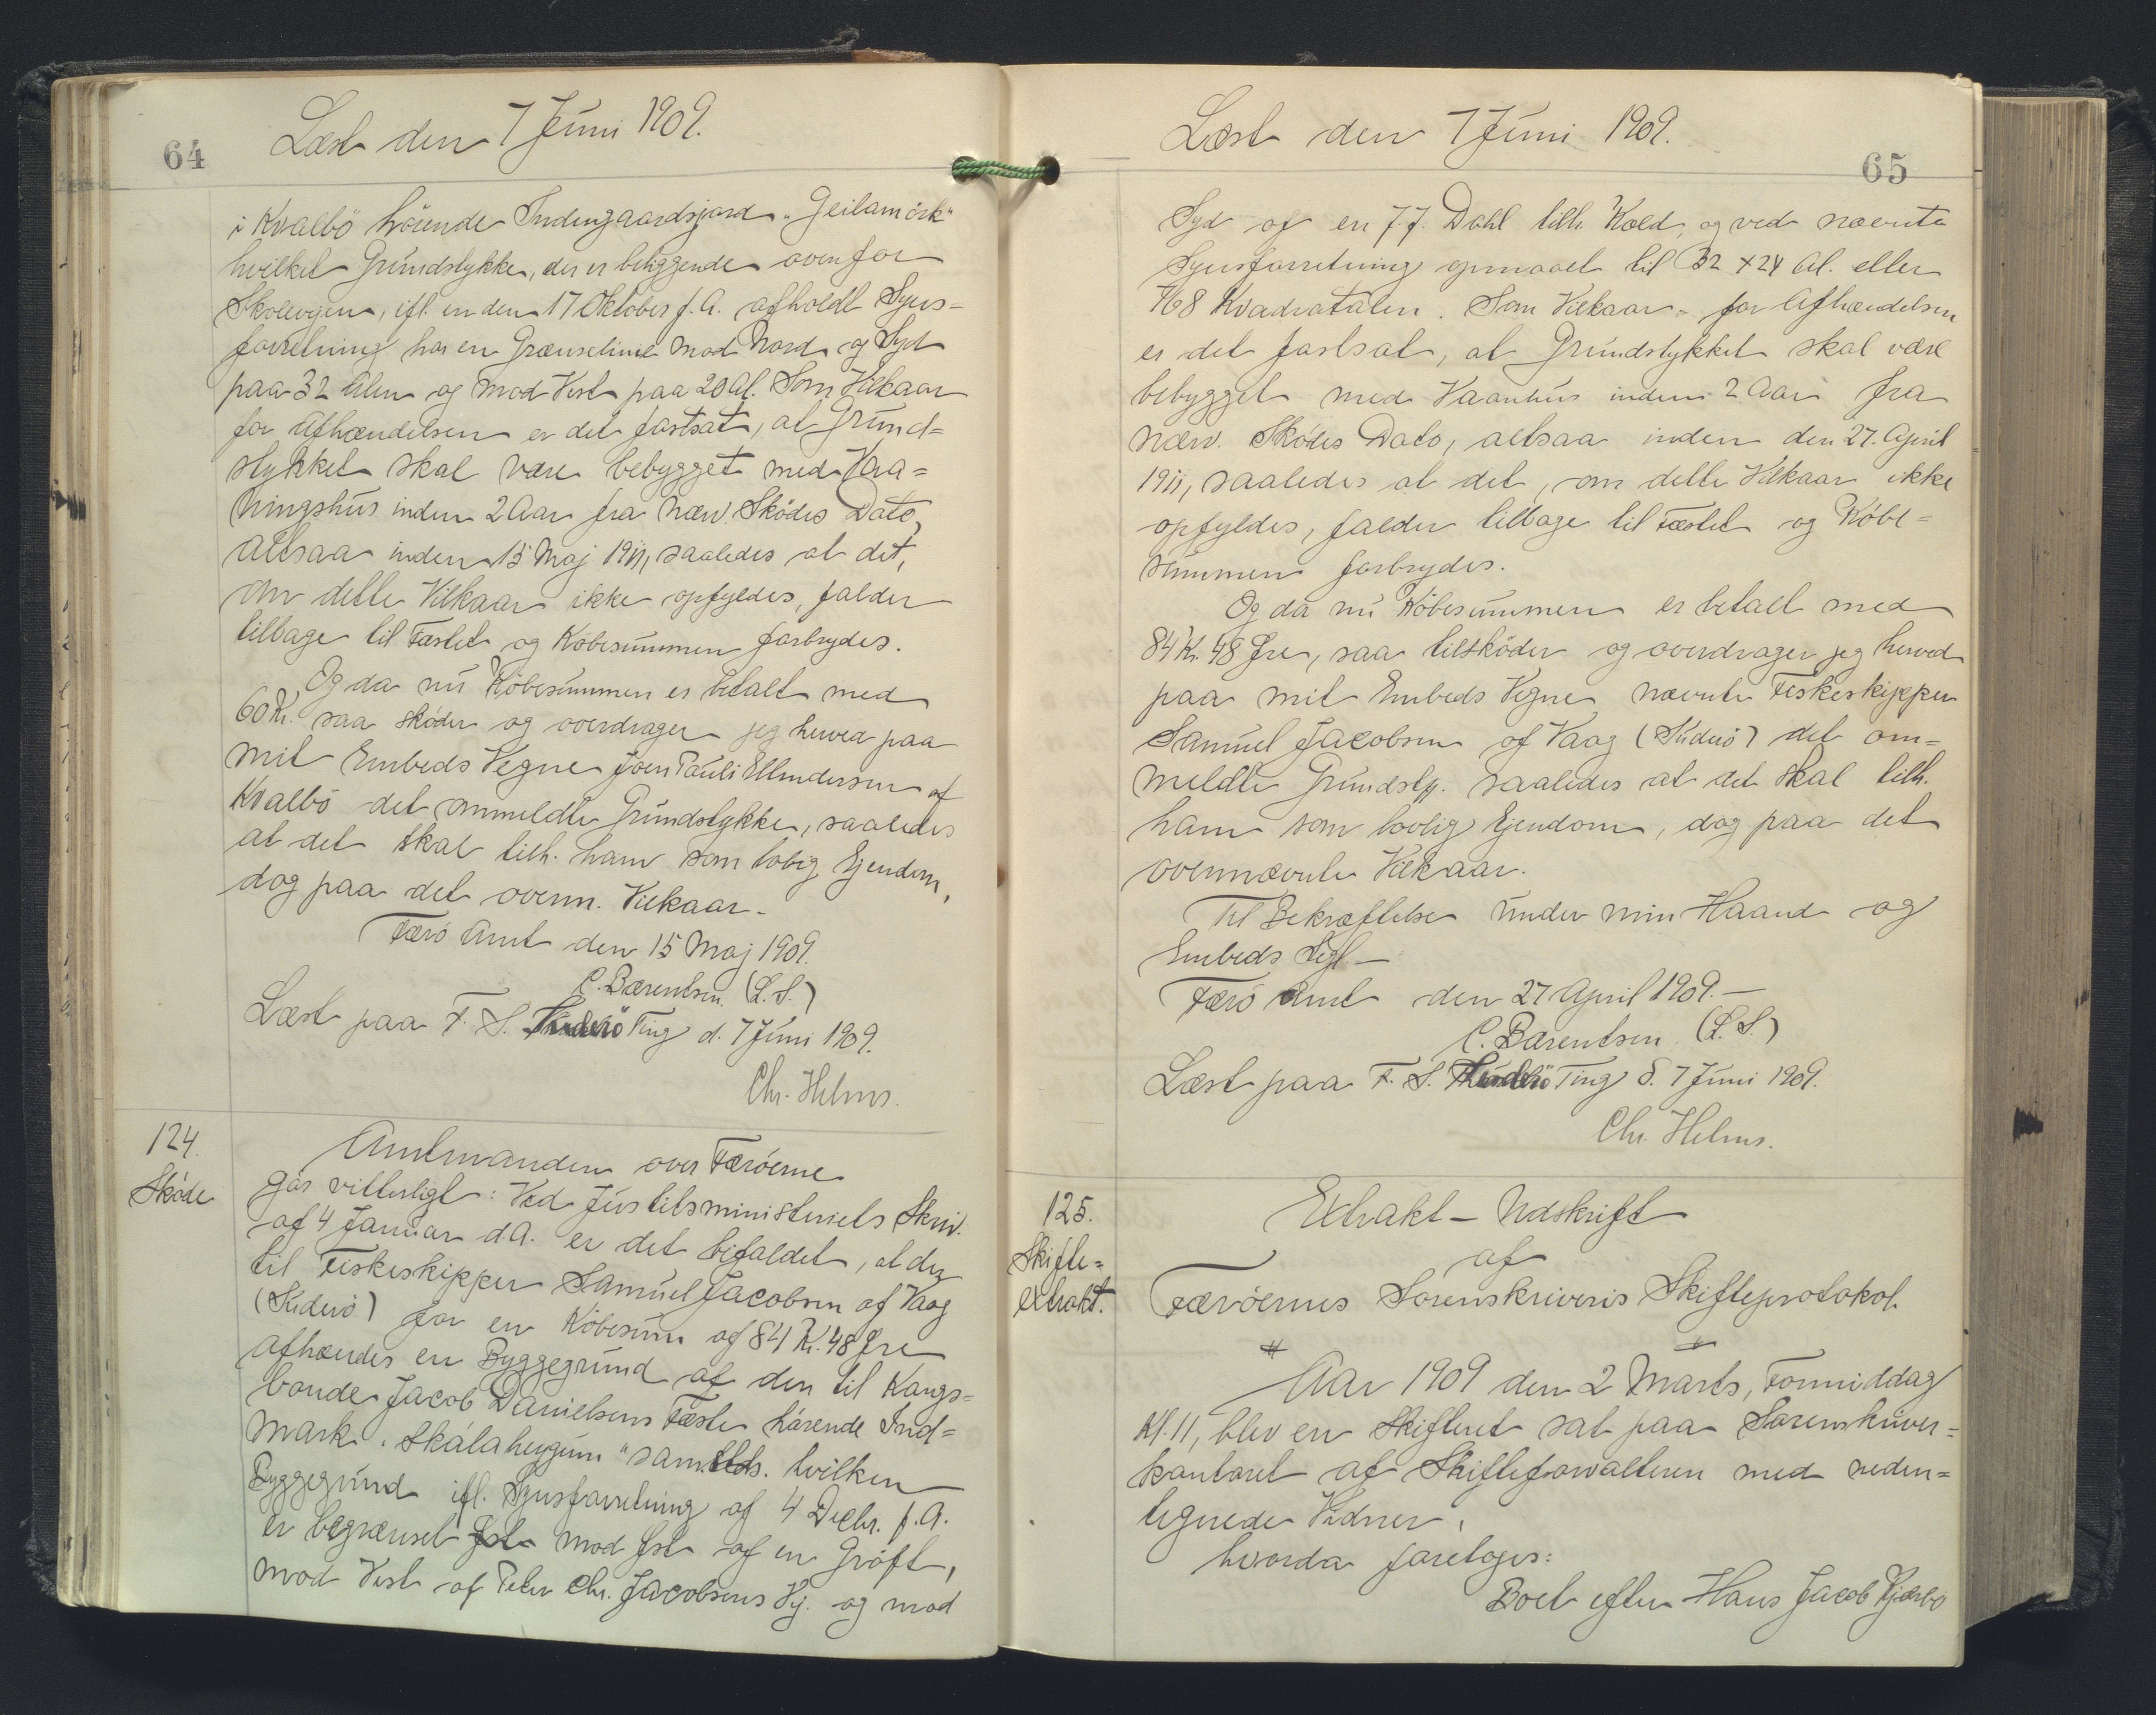 64
Læst den 7 Juni 1909.
i Kvalbö hörende Indengaardsjord "Geilamörk"
hvilket Grundstykke, der er beliggende ovenfor
Skolevejen, ifl. en den 17 Oktober f. A. afholdt Syns-
forretning har en Grænselinie mod Nord og Syd
paa 32 Alen og mod Vest paa 20 Al. Som Vilkaar
for Afhændelsen er det fastsat, at Grund=
stykket skal være bebygget med Vaa=
ningshus inden 2 Aar fra nærv. Sködes Dato,
altsaa inden 15 Maj 1911, saaledes at det,
om dette Vilkaar ikke opfyldes, falder
tilbage til Fæstet og Köbesummen forbrydes.
Og da nu Köbesummen er betalt med
60 Kr. saa sköder og overdrager jeg herved paa
mit Embeds Vegne Joen Pauli Ellendersen af
Kvalbö det ommeldte Grundstykke, saaledes
at det skal tilh. ham som lovlig Ejendom,
dog paa det ovenn. Vilkaar.
Færö Amt den 15 Maj 1909.
C. Bærentsen. (L. S.)
Læst paa F. S. Suderö Ting d. 7 Juni 1909.
Chr. Helms.
124.
Sköde
Amtmanden over Færöerne
gör vitterligt: Ved Justitsministeriets Skriv.
af 4 Januar d. A. er det bifaldet, at der
til Fiskeskipper Samuel Jacobsen af Vaag
(Suderö) for en Köbesum af 84 Kr. 48 Öre
afhændes en Byggegrund af den til Kongs=
bonde Jacob Danielsens Fæste hörende Ind=
mark "Skálaheygum" sam.stds. hvilken
Byggegrund ifl. Synsforretning af 4 Decbr. f. A.
er begrænset mod Öst af en Gröft,
mod Vest af Peter Chr. Jacobsens Vej. og mod
65
Læst den 7 Juni 1909.
Syd af en J. J. Dahl tilh. Kold, og ved nævnte
Synsforretning opmaalt til 32 x 24 Al. eller
768 Kvadratalen. Som Vilkaar for Afhændelsen
er det fastsat, at Grundstykket skal være
bebygget med Vaanhus inden 2 Aar fra
nærv. Sködes Dato, altsaa inden den 27. April
1911, saaledes at det, om dette Vilkaar ikke
opfyldes, falder tilbage til Fæstet og Köbe=
summen forbrydes.
Og da nu Köbesummen er betalt med
84 Kr. 48 Öre, saa tilsköder og overdrager jeg herved
paa mit Embeds Vegne nævnte Fiskeskipper
Samuel Jacobsen af Vaag (Suderö) det om=
meldte Grundsty. saaledes at det skal tilh.
ham som lovlig Ejendom, dog paa det
ovennævnte Vilkaar.
Til Bekræftelse under min Haand og
Embeds Segl.—
Færö Amt den 27 April 1909.—
C. Bærentsen. (L. S.)
Læst paa F. S. Suderö Ting d. 7 Juni 1909.
Chr. Helms.
125.
Skifte=
extrakt.
Extrakt-Udskrift
af
Færöernes Sorenskriveris Skifteprotokol.
Aar 1909 den 2 Marts, Formiddag
Kl. 11, blev en Skifteret sat paa Sorenskriver=
kontoret af Skifteforvalteren med neden=
tegnede Vidner,
hvorda foretoges:
Boet efter Hans Jacob Kjærbo